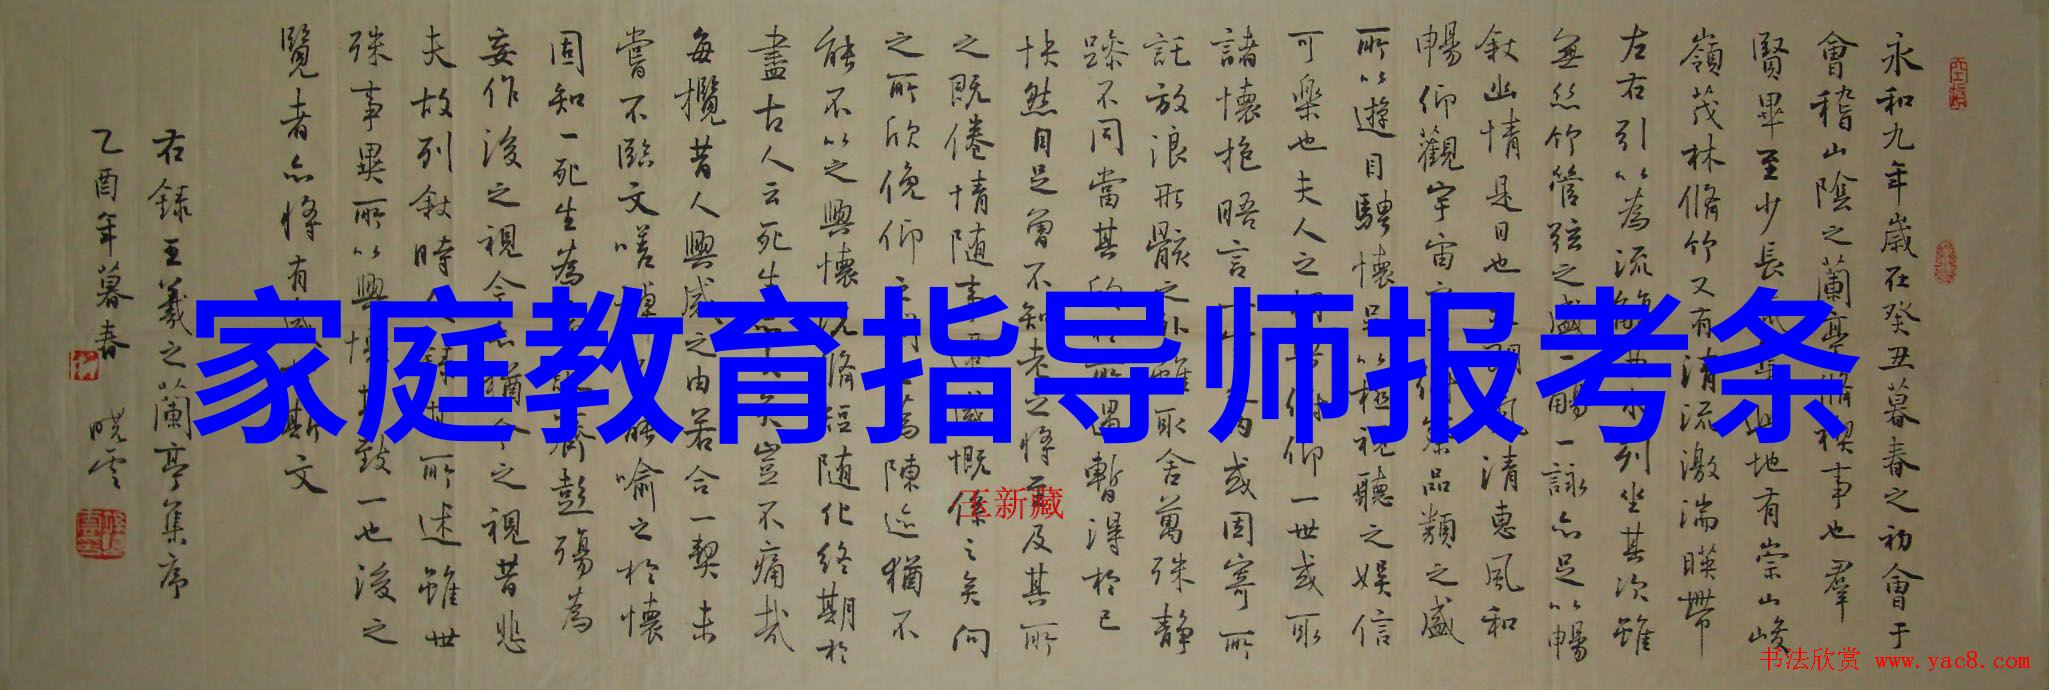 永和九年歲在癸丑暮春之初會于
會稽山陰之蘭亭脩禊事也羣
賢畢至少長此地有崇山峻
嶺茂林脩竹又有清流激湍暎帶
左右引以為流觴曲水列坐其次雖
無絲竹管弦之盛一觴一詠亦足以暢
敘幽情是日也清惠風和
暢仰觀宇宙之品類之盛
所以遊目騁懷足以極視聽之娛信
可樂也夫人之相與俯仰一世或取
諸懷抱晤言一內或因寄所
託放浪形骸之外雖取舍萬殊靜
躁不同當其欣於所遇暫得於己
怏然自足曾不知老之將至及其所
之既倦情随事感慨係之矣向
之所欣俛仰之間為陳迹猶不
能不以之興懷況脩短随化終期於
盡古人云死生亦大矣豈不痛哉
每攬昔人興感之由若合一契未
嘗不臨文嗟悼不能喻之於懷
固知一死生為齊彭殤為
妄作後之視今亦猶今之視昔悲
夫故列敘時人錄其所述雖世
殊事異所以興懷其致一也後之
覽者亦將有感斯文
右錄王羲之蘭亭集序
乙酉年暮春 曉雲
家庭教育指导师报考条
王新藏
书法欣赏 www.yac8.com